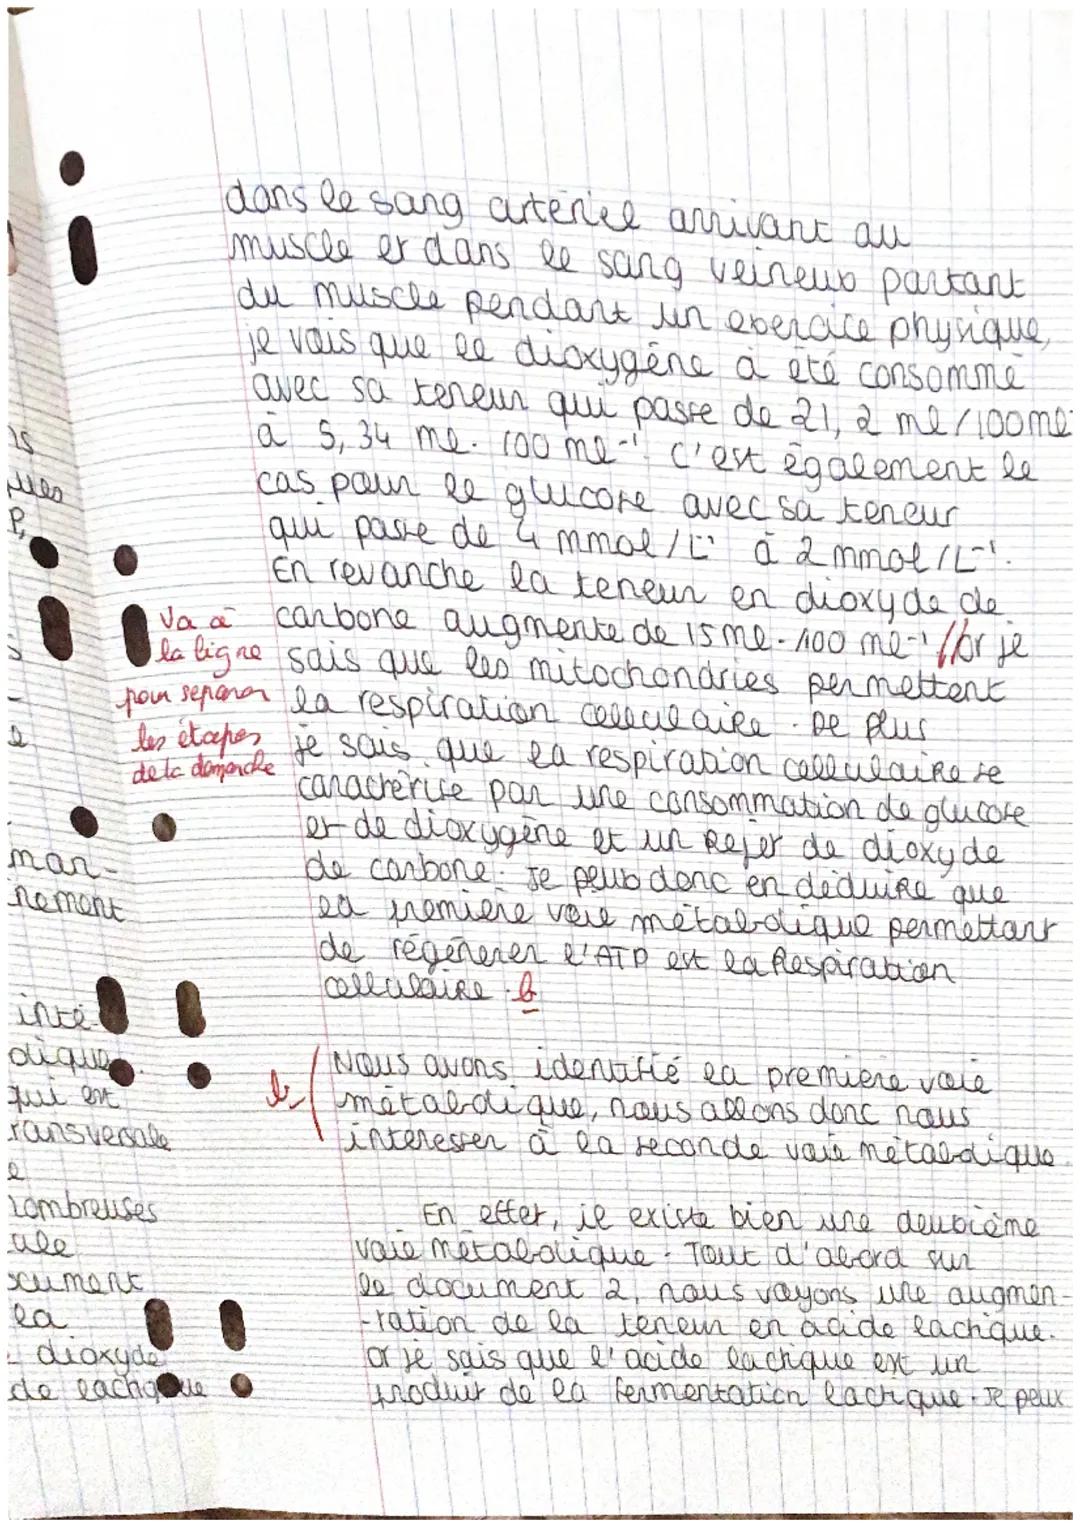 dans le sang artériel arrivant au
muscle et dans le sang veineux partant
du muscle pendant un exercice physique,
je vois que le dioxygène à été consommé
avec sa teneur qui passe de 21,2 ml/100ml
à 5,34 ml.100 ml⁻¹. C'est également le
cas pour le glucose avec sa teneur
qui passe de 4 mmol/L⁻¹ à 2 mmol/L⁻¹.
En revanche la teneur en dioxyde de
carbone augmente de 15 ml.100 ml⁻¹ // Or je
sais que les mitochondries permettent
la respiration cellulaire. De plus
je sais que la respiration cellulaire se
caractérise par une consommation de glucose
et de dioxygène et un rejet de dioxyde
de carbone. Je peux donc en déduire que
la première voie métabolique permettant
de régénérer l'ATP est la Respiration
cellulaire. b
Va à
la ligne
pour séparer
les étapes
de la démarche
b
Nous avons identifié la première voie
métabolique, nous allons donc nous
intéresser à la seconde voie métabolique.
En effet, il existe bien une deuxième
voie métabolique. Tout d'abord sur
le document 2, nous voyons une augmen-
-tation de la teneur en acide lactique.
Or je sais que l'acide lactique est un
produit de la fermentation lactique. Je peux
ques
P,
man-
nement
inté-
olique.
qui est
transversale
e
nombreuses
ale
ocument
la
dioxyde
de lactique